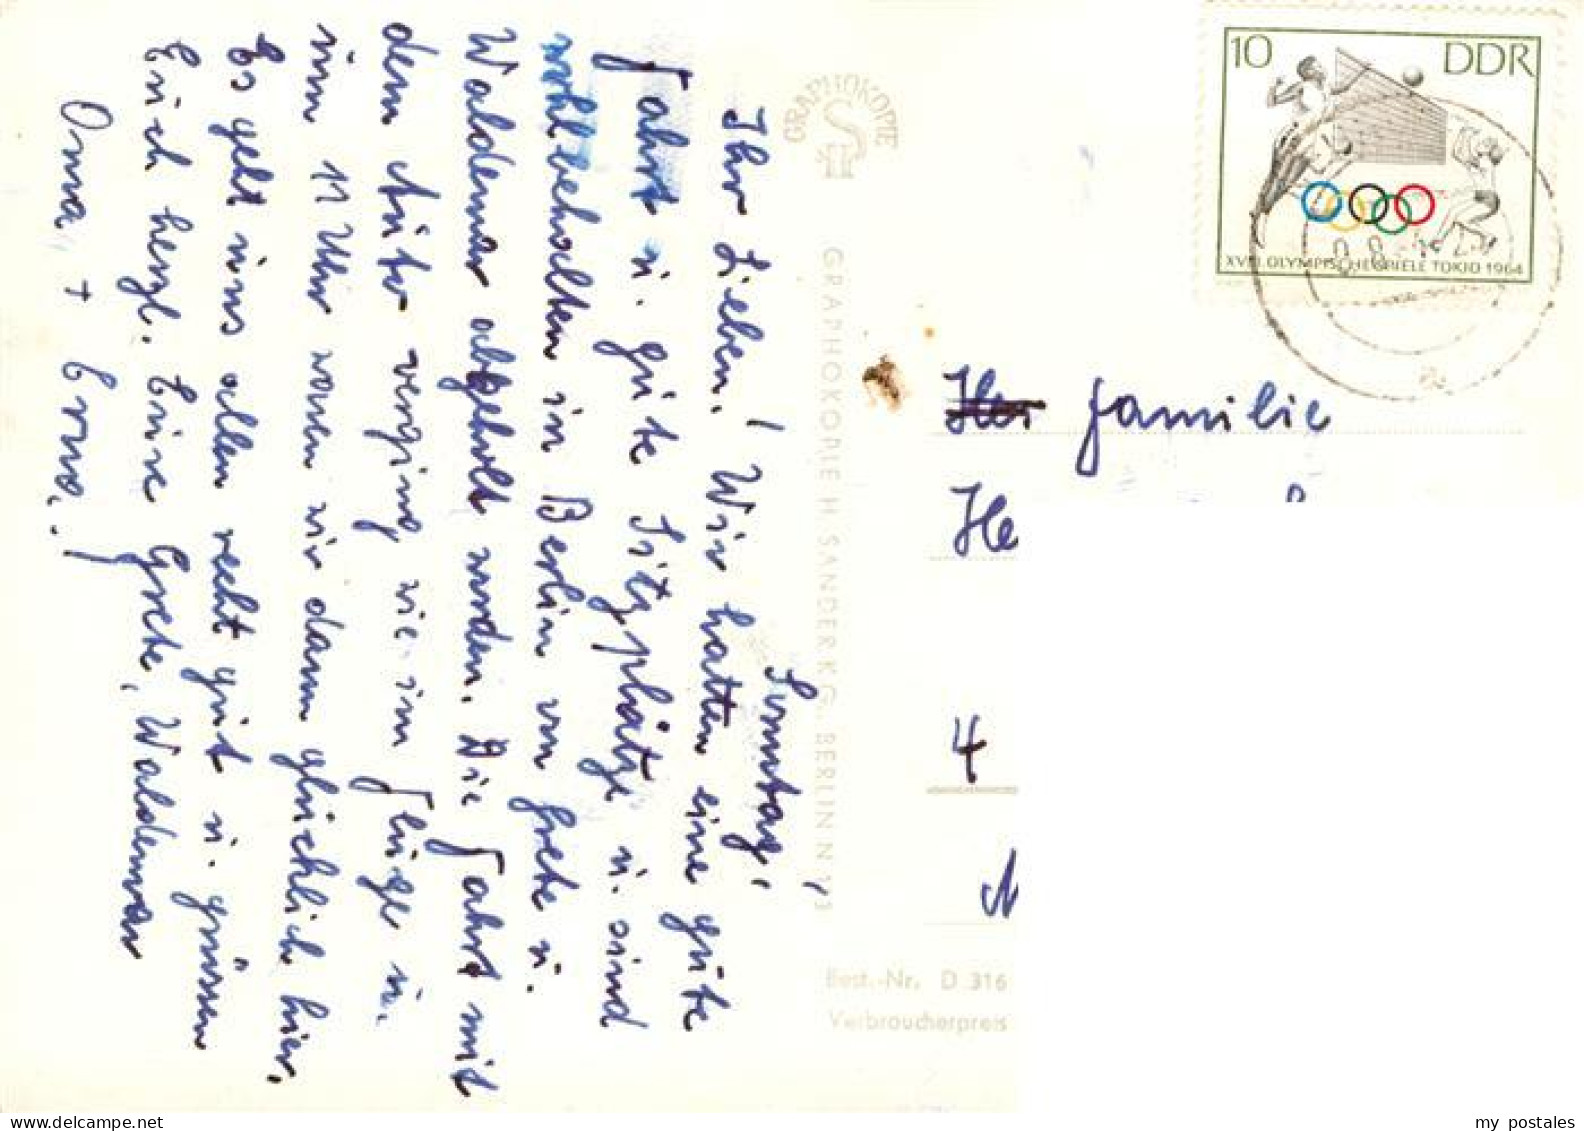 Sonntag,
Ihr Lieben! Wir hatten eine gute
Fahrt u. gute Sitzplätze u. sind
wohlbehalten in Berlin von Grete u.
Waldemar abgeholt worden. Die Fahrt mit
dem Auto verging wie im Fluge u.
um 11 Uhr waren wir dann glücklich hier.
Es geht uns allen recht gut u. grüssen
Euch herzl. Eure Grete, Waldemar
Oma, + Erna.!
GRAPHOKOPIE
H S
GRAPHOKOPIE H. SANDER KG. BERLIN N 113
10 DDR
XVIII. OLYMPISCHE SPIELE TOKIO 1964
Familie
He
4
Best.-Nr. D 316
Verbraucherpreis
my postales